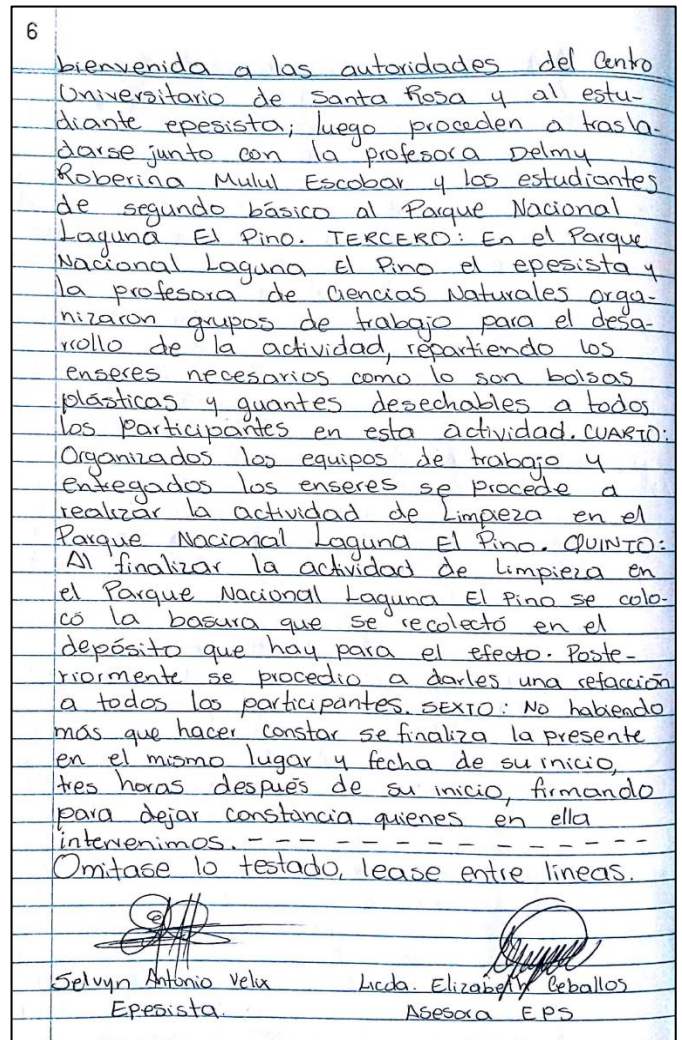 6
bienvenida a las autoridades del Centro
Universitario de Santa Rosa y al estu-
diante epesista; luego proceden a trasla-
darse junto con la profesora Delmy
Roberina Mulul Escobar y los estudiantes
de segundo básico al Parque Nacional
Laguna El Pino. TERCERO: En el Parque
Nacional Laguna El Pino el epesista y
la profesora de Ciencias Naturales orga-
nizaron grupos de trabajo para el desa-
rrollo de la actividad, repartiendo los
enseres necesarios como lo son bolsas
plásticas y guantes desechables a todos
los participantes en esta actividad. CUARTO:
Organizados los equipos de trabajo y
entregados los enseres se procede a
realizar la actividad de Limpieza en el
Parque Nacional Laguna El Pino. QUINTO:
Al finalizar la actividad de Limpieza en
el Parque Nacional Laguna El Pino se colo-
có la basura que se recolectó en el
depósito que hay para el efecto. Poste-
riormente se procedio a darles una refacción
a todos los participantes. SEXTO: No habiendo
más que hacer constar se finaliza la presente
en el mismo lugar y fecha de su inicio,
tres horas después de su inicio, firmando
para dejar constancia quienes en ella
intervenimos. - - - - - - - - - - - - -
Omitase lo testado, lease entre lineas.
Selvyn Antonio Velix Licda. Elizabeth Ceballos
Epesista. Asesora EPS